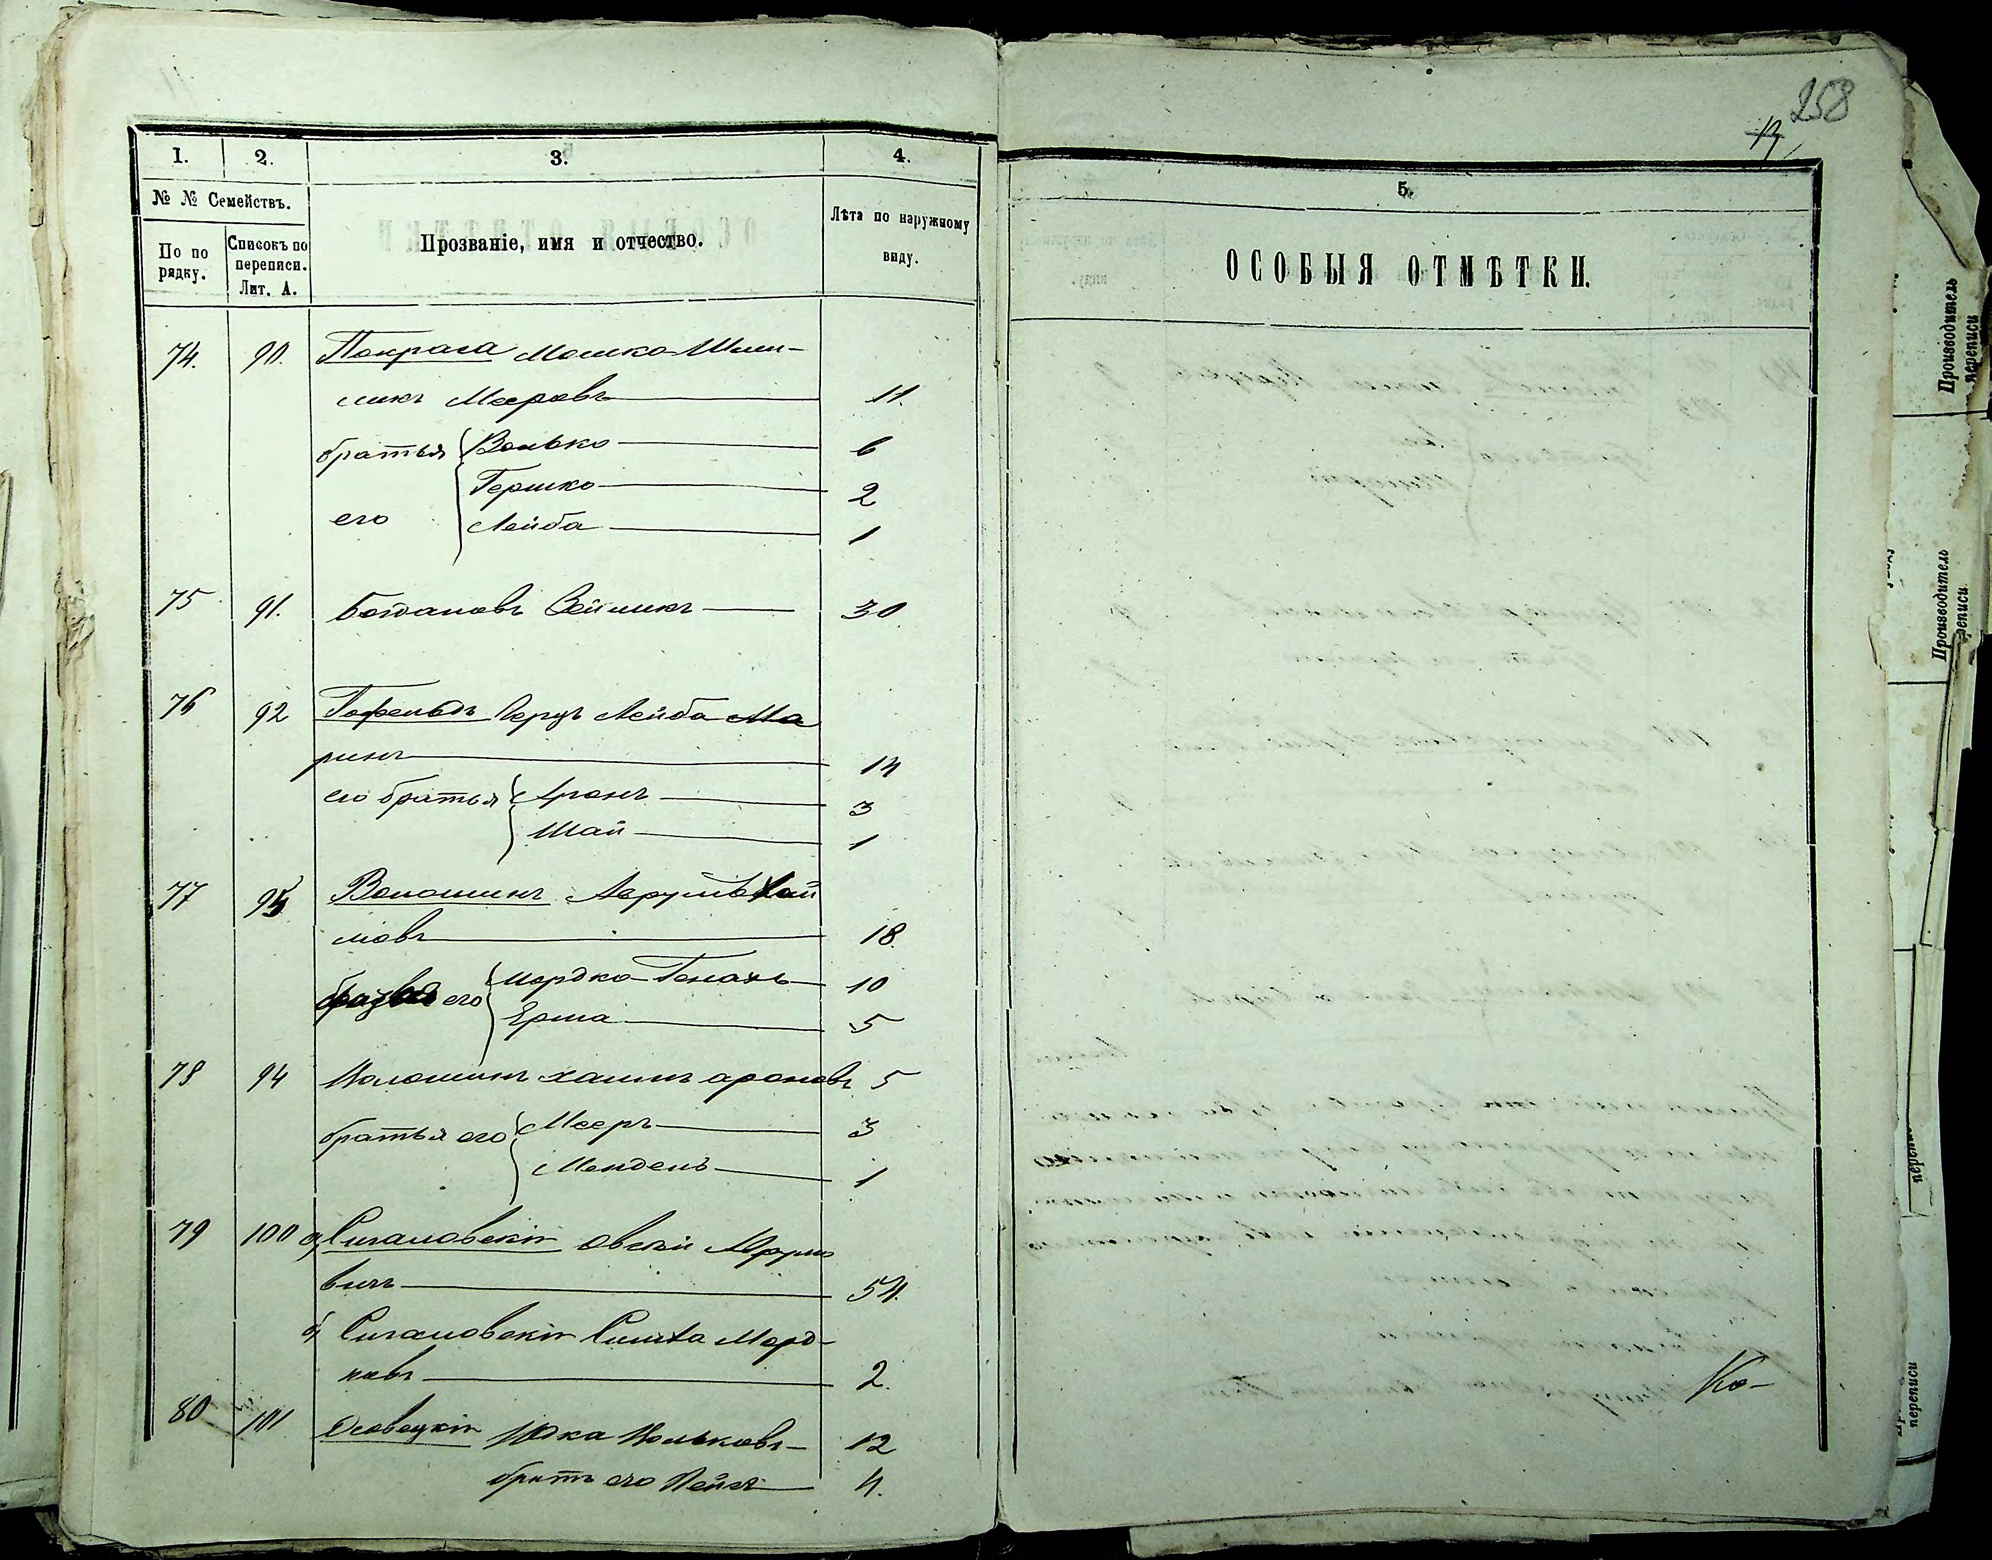 1. 2. 3. 4.
№ № Семействъ.
По по рядку.
Списокъ по переписи. Лит. А.
Прозваніе, имя и отчество.
Лѣта по наружному виду.
74. 90. Покраса Мошко-Шми-
ликъ Мееровъ 11.
братья Волько 6
Гершко 2
его Лейба 1
75 91. Богдановъ Зейликъ 30
76 92 Гофельдъ Герцъ Лейба Ма
ринъ 14
его братья Аронъ 3
Шай 1
77 93 Волошинъ Аврумъ Хай
мовъ 18.
его Мордко-Генахъ 10
Ерма 5
78 94 Волошинъ Хаимъ Ароновъ 5
братья его Мееръ 3
Мендель 1
79 100 а, Сигаловскій Овсей Мрумо
вичъ 54.
б, Сигаловскій Симха Морд-
ковъ 2.
80 101 Осовецкій Юдка Вольковъ 12
братъ его Лейзъ 4.
258
13
5.
ОСОБЫЯ ОТМѢТКИ.
Ко-
Производитель
переписи
Производитель
переписи.
переписи